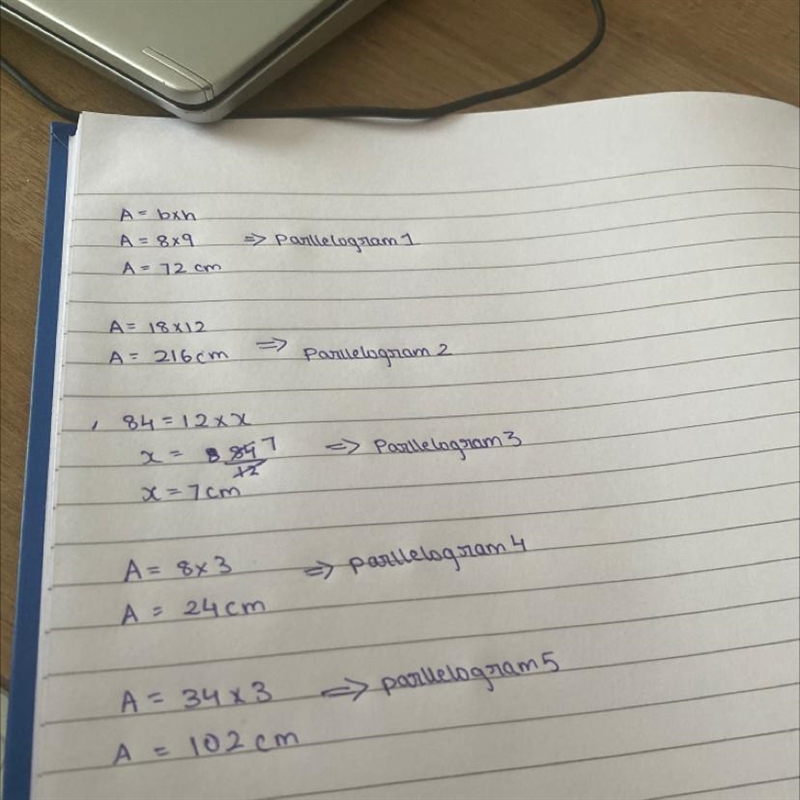 A = b×h
A = 8×9 => Parllelogram 1
A = 72 cm
A = 18×12
A = 216 cm => Parllelogram 2
84 = 12 × x
x = 84 7 => Parllelogram 3
12
x = 7 cm
A = 8×3 => parllelogram 4
A = 24 cm
A = 34 × 3 => parllelogram 5
A = 102 cm